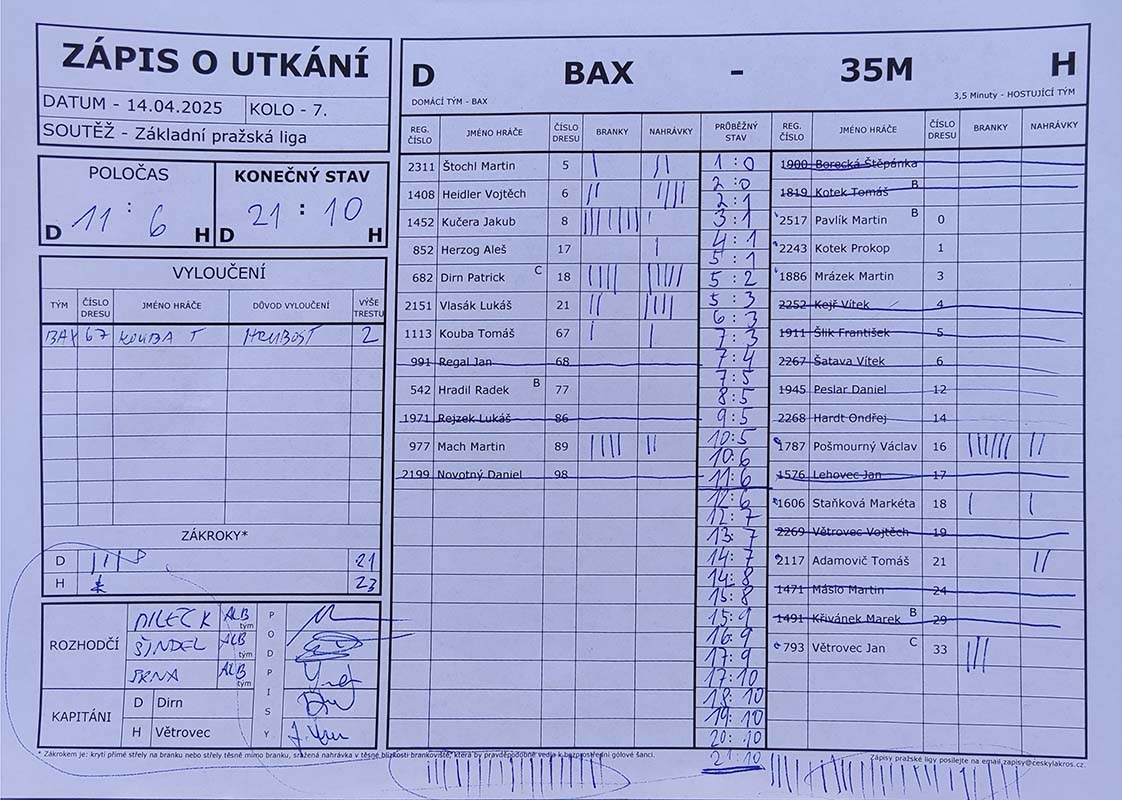 ZÁPIS O UTKÁNÍ
DATUM - 14.04.2025 KOLO - 7.
SOUTĚŽ - Základní pražská liga
POLOČAS
D 11 : 6 H
KONEČNÝ STAV
D 21 : 10 H
VYLOUČENÍ
TÝM ČÍSLO DRESU JMÉNO HRÁČE DŮVOD VYLOUČENÍ VÝŠE TRESTU
BAX 67 KOUBA T HRUBOST 2
ZÁKROKY*
D 21
H 23
ROZHODČÍ
PILECK ALB tým
ŠINDEL ALB tým
SRNA ALB tým
PODPISY
KAPITÁNI
D Dirn
H Větrovec
D BAX - 35M H
DOMÁCÍ TÝM - BAX 3,5 Minuty - HOSTUJÍCÍ TÝM
REG. ČÍSLO JMÉNO HRÁČE ČÍSLO DRESU BRANKY NAHRÁVKY PRŮBĚŽNÝ STAV REG. ČÍSLO JMÉNO HRÁČE ČÍSLO DRESU BRANKY NAHRÁVKY
2311 Štochl Martin 5
1408 Heidler Vojtěch 6
1452 Kučera Jakub 8
852 Herzog Aleš 17
682 Dirn Patrick C 18
2151 Vlasák Lukáš 21
1113 Kouba Tomáš 67
991 Regal Jan 68
542 Hradil Radek B 77
1971 Rejzek Lukáš 86
977 Mach Martin 89
2199 Novotný Daniel 98
1 : 0
2 : 0
2 : 1
3 : 1
4 : 1
5 : 1
5 : 2
5 : 3
6 : 3
7 : 3
7 : 4
7 : 5
8 : 5
9 : 5
10 : 5
10 : 6
11 : 6
12 : 6
12 : 7
13 : 7
14 : 7
14 : 8
15 : 8
15 : 9
16 : 9
17 : 9
17 : 10
18 : 10
19 : 10
20 : 10
21 : 10
1900 Borecká Štěpánka
1819 Kotek Tomáš B
2517 Pavlík Martin B 0
2243 Kotek Prokop 1
1886 Mrázek Martin 3
2252 Kejř Vítek 4
1911 Šlik František 5
2267 Šatava Vítek 6
1945 Peslar Daniel 12
2268 Hardt Ondřej 14
1787 Pošmourný Václav 16
1576 Lehovec Jan 17
1606 Staňková Markéta 18
2269 Větrovec Vojtěch 19
2117 Adamovič Tomáš 21
1471 Máslo Martin 24
1491 Křivánek Marek B 29
793 Větrovec Jan C 33
* Zákrokem je: krytí přímé střely na branku nebo střely těsně mimo branku, sražená nahrávka v těsné blízkosti brankoviště, která by pravděpodobně vedla k bezprostřední gólové šanci.
Zápisy pražské ligy posílejte na email zapisy@ceskylakros.cz.